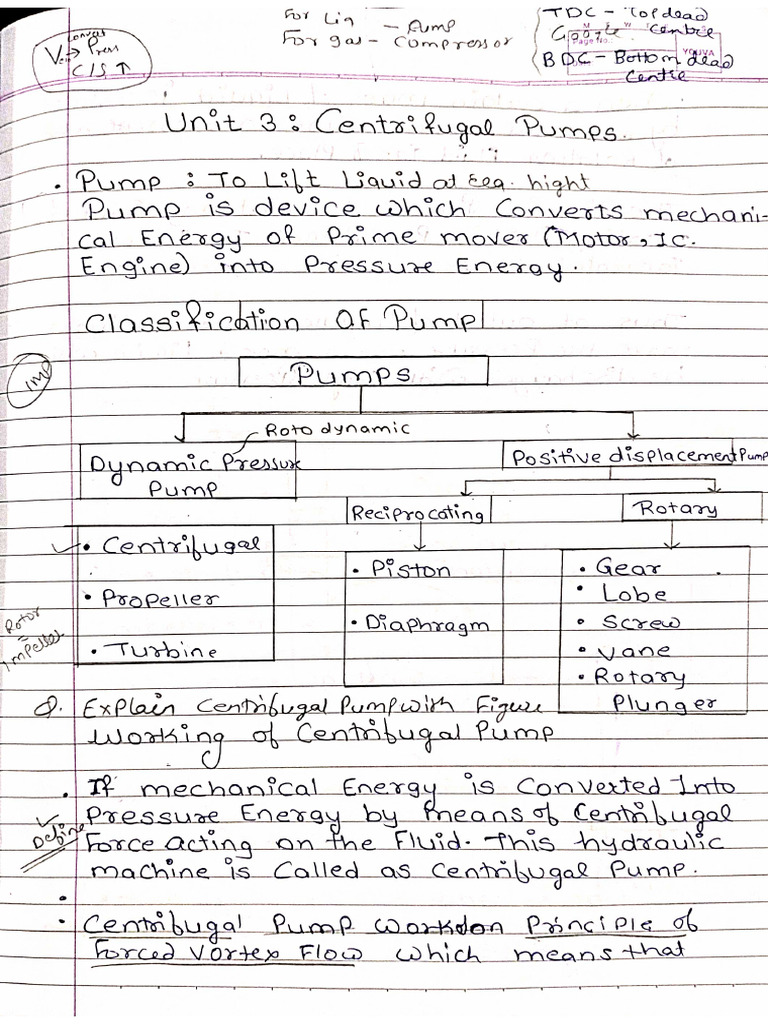 For Liq - Pump
For gas - Compressor
TDC - Top dead
Centre
Page No.:
YOUVA
BDC - Bottom dead
Centre
Convert
V → Press
C/S ↑
Unit 3: Centrifugal Pumps.
• Pump : To Lift Liquid at hight
Pump is device which Converts mechani-
cal Energy of Prime mover (Motor, I.c.
Engine) into Pressure Energy.
Classification Of Pump
Imp
Pumps
Roto dynamic
Dynamic Pressure
Pump
Positive displacement Pump
Reciprocating
Rotary
• Centrifugal
• Propeller
• Turbine
• Piston
• Diaphragm
• Gear
• Lobe
• Screw
• Vane
• Rotary
Plunger
Rotor
=
Impeller
Q. Explain Centrifugal Pump with Figure
Working of Centrifugal Pump
• If mechanical Energy is Converted Into
Pressure Energy by means of Centrifugal
Define
Force acting on the Fluid. This hydraulic
machine is Called as Centrifugal Pump.
• Centrifugal Pump Workdon Principle of
Forced Vortex Flow which means that